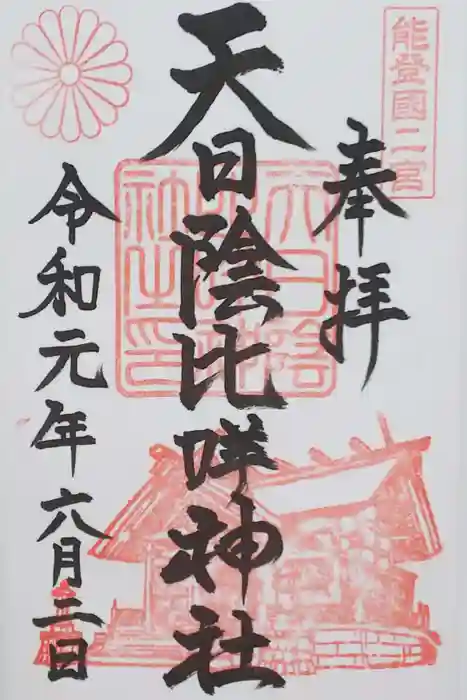 能登國二宮
奉拝
天日陰比咩神社
令和元年六月二日